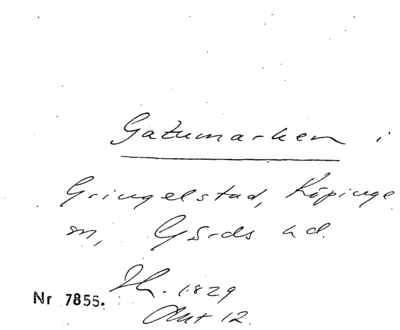 Gatumarken i
Gringelstad, Köpinge
sn, Gärds hd.
Sk. 1829
Akt 12.
Nr 7855.